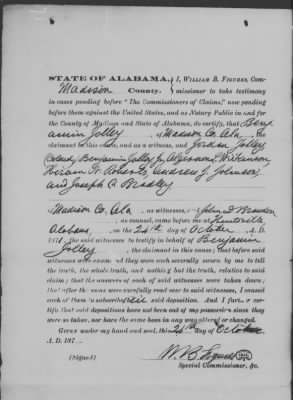 STATE OF ALABAMA, I, WILLIAM B. FIGURES, Com-
Madison County. missioner to take testimony
in cases pending before "The Commissioners of Claims," now pending
before them against the United States, and as Notary Public in and for
the County of Madison and State of Alabama, do certify, that Benj
amin Jolley of Madison Co. Ala, the
claimant in this case, and as a witness, and Jordan Jolley
Colored, Benjamin Jolley Jr, Wilkinson,
Hiram H. Roberts, Andrew J. Johnson
and Joseph C. Bradley
Madison Co. Ala as witnesses, and John D. Brandon
as counsel, came before me at Huntsville
Alabama, on the 26th day of October A. D.
187 , the said witnesses to testify in behalf of Benjamin
Jolley, the claimant in this cause; that before said
witnesses were examined they were each severally sworn by me to tell
the truth, the whole truth, and nothing but the truth, relative to said
claim; that the answers of each of said witnesses were taken down;
that after the same were carefully read over to said witnesses, I caused
each of them to subscribe said deposition. And I further cer-
tify that said depositions have not been out of my possession since they
were so taken, nor have the same been in any way altered or changed.
Given under my hand and seal, this 26th day of October
A. D. 187
(Signed) W. B. Figures
Special Commissioner, &c.